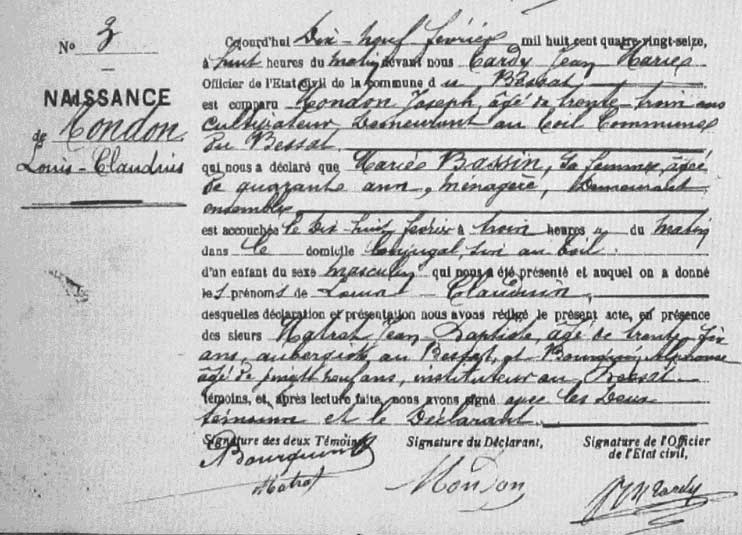 No 3
NAISSANCE
de Mondon
Louis-Claudius
Cejourd'hui Dix-neuf février mil huit cent quatre-vingt-seize,
à huit heures du matin devant nous Tardy Jean Marie
Officier de l'Etat Civil de la commune du Bessat
est comparu Mondon Joseph, âgé de trente-trois ans
cultivateur demeurant au Toil Commune
du Bessat
qui nous a déclaré que Marie Bassin, sa femme, âgée
de quarante ans, ménagère, demeurant
ensemble
est accouchée le Dix-huit février à trois heures du matin
dans le domicile conjugal sis au Toil
d'un enfant du sexe masculin qui nous a été présenté et auquel on a donné
les prénoms de Louis-Claudius
desquelles déclaration et présentation nous avons rédigé le présent acte, en présence
des sieurs Matrat Jean Baptiste, âgé de trente-six
ans, aubergiste au Bessat, et Bourguin, Alphonse
âgé de vingt neuf ans, instituteur au Bessat
témoins, et, après lecture faite, nous avons signé avec les deux
témoins et le Déclarant
Signature des deux Témoins, Signature du Déclarant, Signature de l'Officier
de l'Etat civil,
ABourguin
Matrat
Mondon
JM Tardy